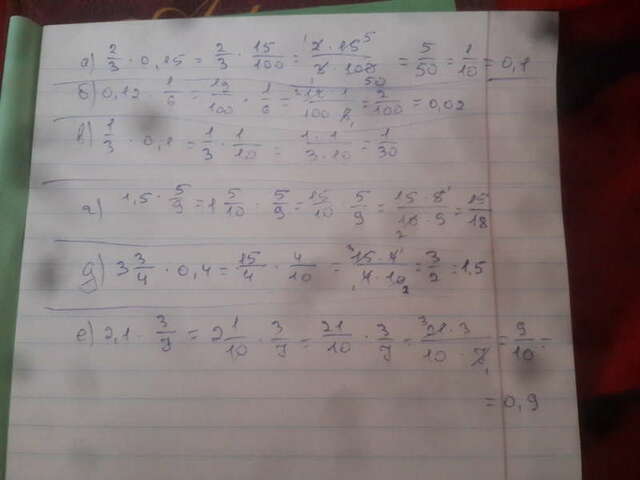 а) 2/3 · 0,15 = 2/3 · 15/100 = 2 · 15/3 · 100 = 5/50 = 1/10 = 0,1
б) 0,12 · 1/6 = 12/100 · 1/6 = 12 · 1/100 · 6 = 2/100 = 0,02
в) 1/3 · 0,1 = 1/3 · 1/10 = 1 · 1/3 · 10 = 1/30
г) 1,5 · 5/9 = 1 5/10 · 5/9 = 15/10 · 5/9 = 15 · 5/10 · 9 = 15/18
д) 3 3/4 · 0,4 = 15/4 · 4/10 = 15 · 4/4 · 10 = 3/2 = 1,5
е) 2,1 · 3/7 = 2 1/10 · 3/7 = 21/10 · 3/7 = 21 · 3/10 · 7 = 9/10 =
= 0,9